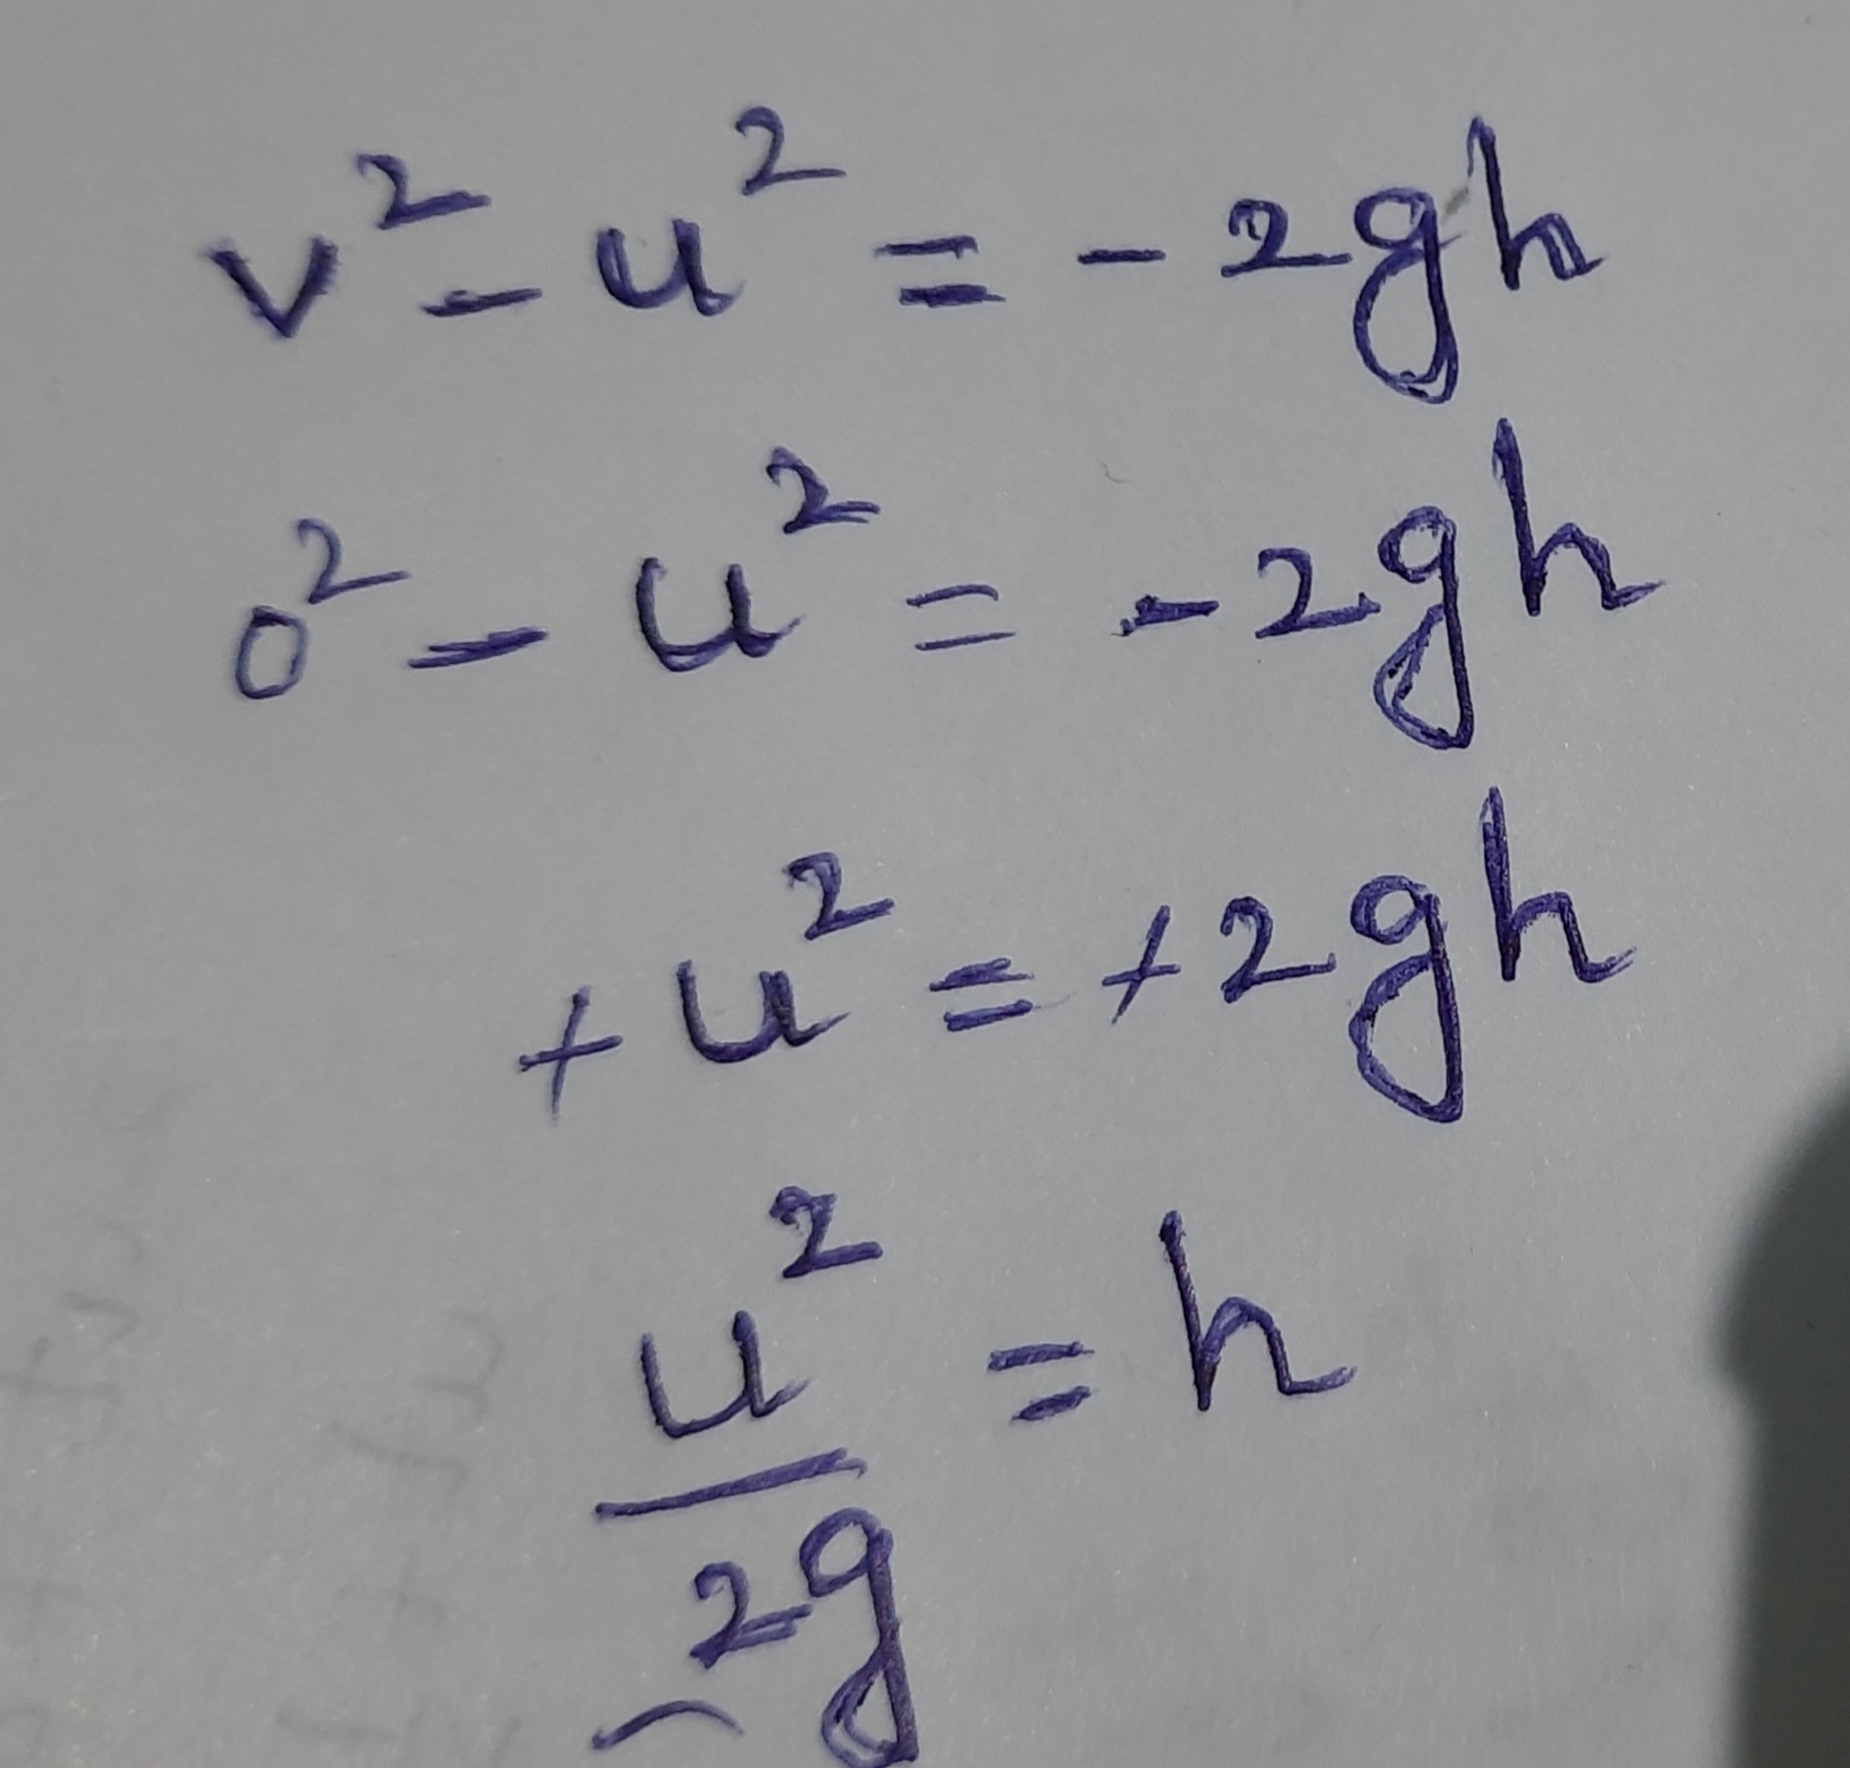 v² - u² = - 2gh
0² - u² = - 2gh
+ u² = + 2gh
u²/2g = h